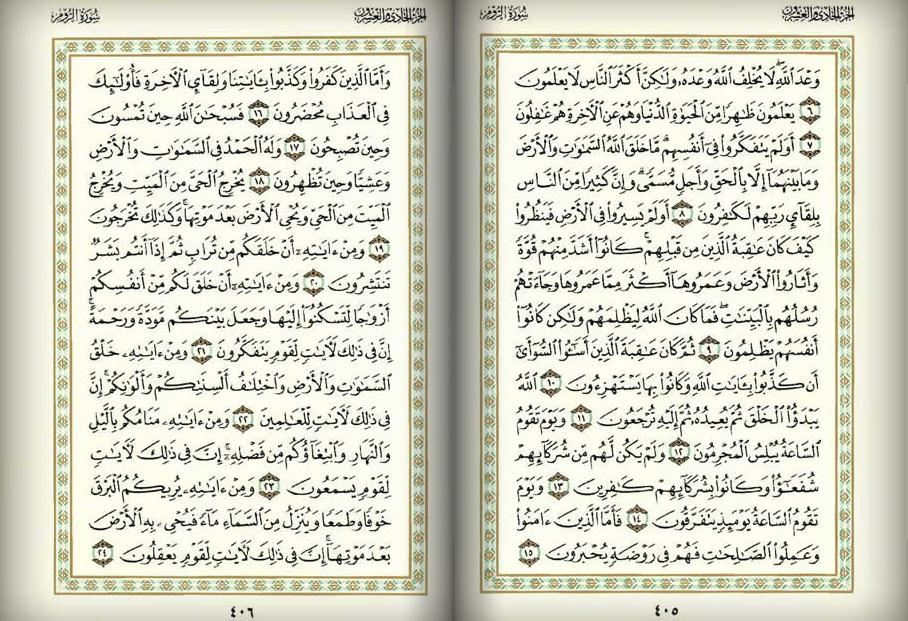 الجزء الحادي والعشرون
سورة الروم
وَعْدَ ٱللَّهِ ۖ لَا يُخْلِفُ ٱللَّهُ وَعْدَهُۥ وَلَٰكِنَّ أَكْثَرَ ٱلنَّاسِ لَا يَعْلَمُونَ
٦ يَعْلَمُونَ ظَٰهِرًا مِّنَ ٱلْحَيَوٰةِ ٱلدُّنْيَا وَهُمْ عَنِ ٱلْءَاخِرَةِ هُمْ غَٰفِلُونَ
٧ أَوَلَمْ يَتَفَكَّرُوا۟ فِىٓ أَنفُسِهِم ۗ مَّا خَلَقَ ٱللَّهُ ٱلسَّمَٰوَٰتِ وَٱلْأَرْضَ
وَمَا بَيْنَهُمَآ إِلَّا بِٱلْحَقِّ وَأَجَلٍ مُّسَمًّى ۗ وَإِنَّ كَثِيرًا مِّنَ ٱلنَّاسِ
بِلِقَآئِ رَبِّهِمْ لَكَٰفِرُونَ ٨ أَوَلَمْ يَسِيرُوا۟ فِى ٱلْأَرْضِ فَيَنظُرُوا۟
كَيْفَ كَانَ عَٰقِبَةُ ٱلَّذِينَ مِن قَبْلِهِمْ ۚ كَانُوٓا۟ أَشَدَّ مِنْهُمْ قُوَّةً
وَأَثَارُوا۟ ٱلْأَرْضَ وَعَمَرُوهَآ أَكْثَرَ مِمَّا عَمَرُوهَا وَجَآءَتْهُمْ
رُسُلُهُم بِٱلْبَيِّنَٰتِ ۖ فَمَا كَانَ ٱللَّهُ لِيَظْلِمَهُمْ وَلَٰكِن كَانُوٓا۟
أَنفُسَهُمْ يَظْلِمُونَ ٩ ثُمَّ كَانَ عَٰقِبَةَ ٱلَّذِينَ أَسَٰٓـُٔوا۟ ٱلسُّوٓأَىٰٓ
أَن كَذَّبُوا۟ بِـَٔايَٰتِ ٱللَّهِ وَكَانُوا۟ بِهَا يَسْتَهْزِءُونَ ١٠ ٱللَّهُ
يَبْدَؤُا۟ ٱلْخَلْقَ ثُمَّ يُعِيدُهُۥ ثُمَّ إِلَيْهِ تُرْجَعُونَ ١١ وَيَوْمَ تَقُومُ
ٱلسَّاعَةُ يُبْلِسُ ٱلْمُجْرِمُونَ ١٢ وَلَمْ يَكُن لَّهُم مِّن شُرَكَآئِهِمْ
شُفَعَٰٓؤُا۟ وَكَانُوا۟ بِشُرَكَآئِهِمْ كَٰفِرِينَ ١٣ وَيَوْمَ
تَقُومُ ٱلسَّاعَةُ يَوْمَئِذٍ يَتَفَرَّقُونَ ١٤ فَأَمَّا ٱلَّذِينَ ءَامَنُوا۟
وَعَمِلُوا۟ ٱلصَّٰلِحَٰتِ فَهُمْ فِى رَوْضَةٍ يُحْبَرُونَ ١٥
٤٠٥
الجزء الحادي والعشرون
سورة الروم
وَأَمَّا ٱلَّذِينَ كَفَرُوا۟ وَكَذَّبُوا۟ بِـَٔايَٰتِنَا وَلِقَآئِ ٱلْءَاخِرَةِ فَأُو۟لَٰٓئِكَ
فِى ٱلْعَذَابِ مُحْضَرُونَ ١٦ فَسُبْحَٰنَ ٱللَّهِ حِينَ تُمْسُونَ
وَحِينَ تُصْبِحُونَ ١٧ وَلَهُ ٱلْحَمْدُ فِى ٱلسَّمَٰوَٰتِ وَٱلْأَرْضِ
وَعَشِيًّا وَحِينَ تُظْهِرُونَ ١٨ يُخْرِجُ ٱلْحَىَّ مِنَ ٱلْمَيِّتِ وَيُخْرِجُ
ٱلْمَيِّتَ مِنَ ٱلْحَىِّ وَيُحْىِ ٱلْأَرْضَ بَعْدَ مَوْتِهَا ۚ وَكَذَٰلِكَ تُخْرَجُونَ
١٩ وَمِنْ ءَايَٰتِهِۦٓ أَنْ خَلَقَكُم مِّن تُرَابٍ ثُمَّ إِذَآ أَنتُم بَشَرٌ
تَنتَشِرُونَ ٢٠ وَمِنْ ءَايَٰتِهِۦٓ أَنْ خَلَقَ لَكُم مِّنْ أَنفُسِكُمْ
أَزْوَٰجًا لِّتَسْكُنُوٓا۟ إِلَيْهَا وَجَعَلَ بَيْنَكُم مَّوَدَّةً وَرَحْمَةً ۚ
إِنَّ فِى ذَٰلِكَ لَءَايَٰتٍ لِّقَوْمٍ يَتَفَكَّرُونَ ٢١ وَمِنْ ءَايَٰتِهِۦ خَلْقُ
ٱلسَّمَٰوَٰتِ وَٱلْأَرْضِ وَٱخْتِلَٰفُ أَلْسِنَتِكُمْ وَأَلْوَٰنِكُمْ ۚ إِنَّ
فِى ذَٰلِكَ لَءَايَٰتٍ لِّلْعَٰلِمِينَ ٢٢ وَمِنْ ءَايَٰتِهِۦ مَنَامُكُم بِٱلَّيْلِ
وَٱلنَّهَارِ وَٱبْتِغَآؤُكُم مِّن فَضْلِهِۦٓ ۚ إِنَّ فِى ذَٰلِكَ لَءَايَٰتٍ
لِّقَوْمٍ يَسْمَعُونَ ٢٣ وَمِنْ ءَايَٰتِهِۦ يُرِيكُمُ ٱلْبَرْقَ
خَوْفًا وَطَمَعًا وَيُنَزِّلُ مِنَ ٱلسَّمَآءِ مَآءً فَيُحْىِۦ بِهِ ٱلْأَرْضَ
بَعْدَ مَوْتِهَآ ۚ إِنَّ فِى ذَٰلِكَ لَءَايَٰتٍ لِّقَوْمٍ يَعْقِلُونَ ٢٤
٤٠٦